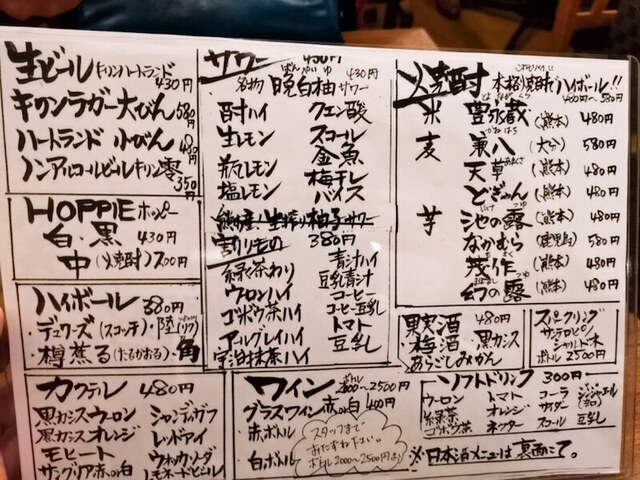 生ビール キリンハートランド 430円
キリンラガー大びん 580円
ハートランド 小びん 480円
ノンアルコールビールキリン零 350円
HOPPIE ホッピー
白・黒 430円
中(焼酎)200円
ハイボール 380円
・デュワーズ(スコッチ)・陸
・樽薫る(たるかおる)・角
カクテル 480円
黒カシスウーロン シャンディガフ
黒カシスオレンジ レッドアイ
モヒート ウオッカソーダ
サングリア赤or白 レモネードビール
サワー 430円
名物 晩白柚サワー 430円
ばんぺいゆ
酎ハイ クエン酸
生レモン スコール
瓦レモン 金魚
塩レモン 梅干し
バイス
熊本産!生搾り柚子サワー
割りもの 380円
緑茶わり 青汁ハイ
ウーロンハイ 豆乳青汁
ゴボウ茶ハイ コーヒー
アールグレイハイ コーヒー豆乳
宇治抹茶ハイ トマト
豆乳
ワイン 2000~2500円
グラスワイン赤or白 400円
赤ボトル
白ボトル
スタッフまで
おたずね下さい。
ボトル2000~2500円
焼酎 本格焼酎でハイボール!!
400円~580円
米 豊永蔵(熊本) 480円
麦 兼八(大分) 580円
天草(熊本) 480円
どぎゃん(熊本) 480円
芋 池の露(熊本) 480円
なかむら(鹿児島) 580円
茂作(熊本) 480円
幻の露(熊本) 480円
果実酒 480円
・梅酒・黒カシス
あらごしみかん
スパークリング
サンテロピノ
シャルドネ
ボトル 2500円
ソフトドリンク 300円
ウーロン トマト コーラ ジンジャエール(辛口)
緑茶 オレンジ サイダー
ゴボウ茶 ネクター スコール 豆乳
※日本酒メニューは裏面にて。